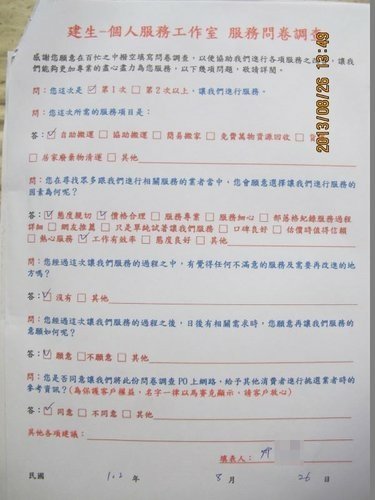 建生-個人服務工作室 服務問卷調查
感謝您願意在百忙之中撥空填寫問卷調查，以使協助我們進行各項服務之改,讓我
們能夠更加專業的盡心盡力為您服務，以下幾項問題，敬請詳閱。
問：您這次是 ☑ 第1次 ☐ 第2次以上，讓我們進行服務。
問：您這次所需的服務項目是：
答：☑ 自助搬運 ☐ 協助搬運 ☐ 簡易搬家 ☐ 免費萬物資源回收 ☐
☐ 居家廢棄物清運 ☐ 其他
問：您在尋找眾多跟我們進行相關服務的業者當中，您會願意選擇讓我們進行服務的
因素為何呢？
答：☑ 態度親切 ☑ 價格合理 ☐ 服務專業 ☐ 服務細心 ☐ 部落格紀錄服務過程
詳細 ☐ 網友推薦 ☐ 只是單純試著讓我們服務 ☐ 口碑良好 ☐ 估價時值得信賴
☐ 熱心服務 ☑ 工作有效率 ☐ 態度良好 ☐ 其他
問：您經過這次讓我們服務的過程之中，有覺得任何不滿意的服務及需要再改進的地
方嗎？
答：☑ 沒有 ☐ 其他
問：您經過這次讓我們服務的過程之後，日後有相關需求時，您願意再讓我們服務的
意願如何呢？
答：☑ 願意 ☐ 不願意 ☐ 其他
問：您是否同意讓我們將此份問卷調查PO上網路，給予其他消費者進行挑選業者時的
參考資訊？(為保護客戶權益，名字一律以馬賽克顯示，請客戶放心)
答：☑ 同意 ☐ 不同意 ☐ 其他
其他各項建議：
填表人：
民國 102 年 8 月 26 日
2013/08/26 13:49